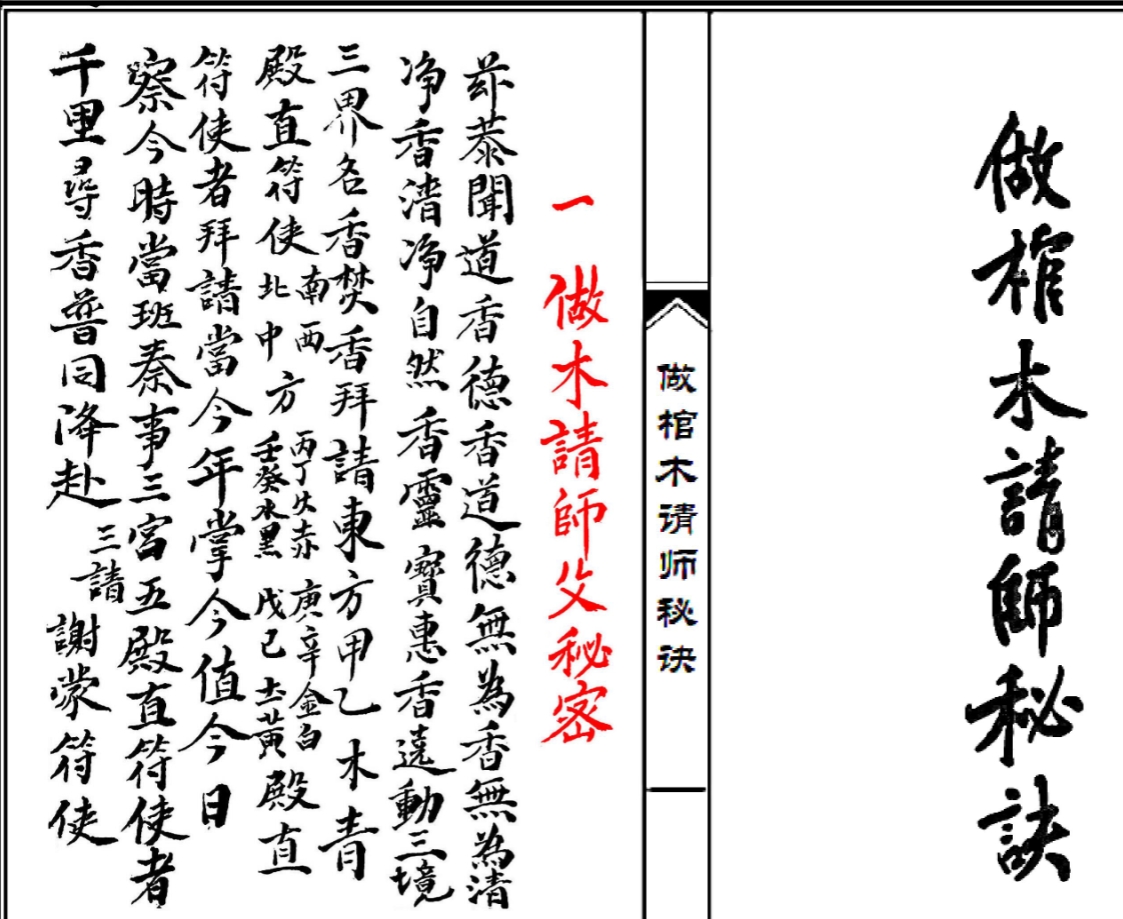 做棺木請師秘訣
做棺木请师秘诀
一 做木請師父秘密
茲恭聞道香德香道德無為香無為清
净香清净自然香靈寶惠香遶動三境
三界名香焚香拜請東方甲乙木青
殿直符使南西北中方丙丁火赤庚辛金白壬癸水黑戊己土黃殿直
符使者拜請當今年掌今值今日
察今時當班奏事三宮五殿直符使者
千里尋香普同降赴三請謝蒙符使